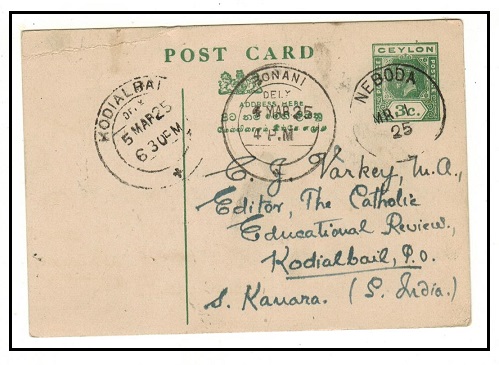 POST CARD
CEYLON
POSTAGE
3c.
ADDRESS HERE
KODIALBAI
DELY
5 MAR 25
6.30 PM
PONANI
DELY
4 MAR 25
4 P.M
NEBODA
MR
25
C. J. Varkey, M.A.,
Editor, The Catholic
Educational Review,
Kodialbail, P.O.
S. Kanara. (S. India.)